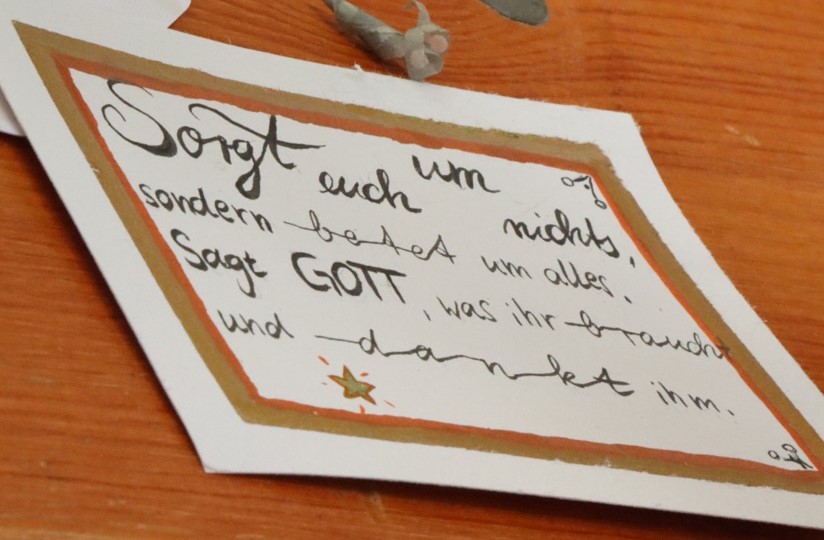 Sorgt euch um nichts,
sondern betet um alles.
Sagt GOTT, was ihr braucht
und dankt ihm.